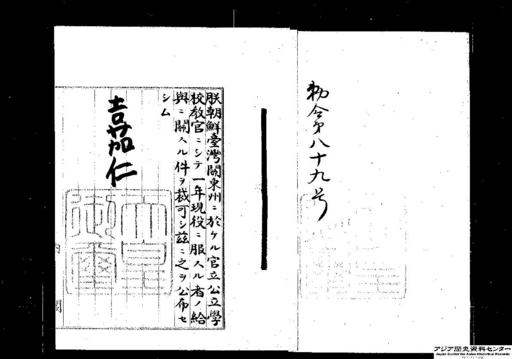 勅令第八十九号
朕朝鮮臺灣關東州ニ於ケル官立公立學
校教官ニシテ一年現役ニ服スル者ノ給
與ニ關スル件ヲ裁可シ茲ニ之ヲ公布セ
シム
嘉仁
天皇
御璽
内閣
アジア歴史資料センター
Japan Center for Asian Historical Records